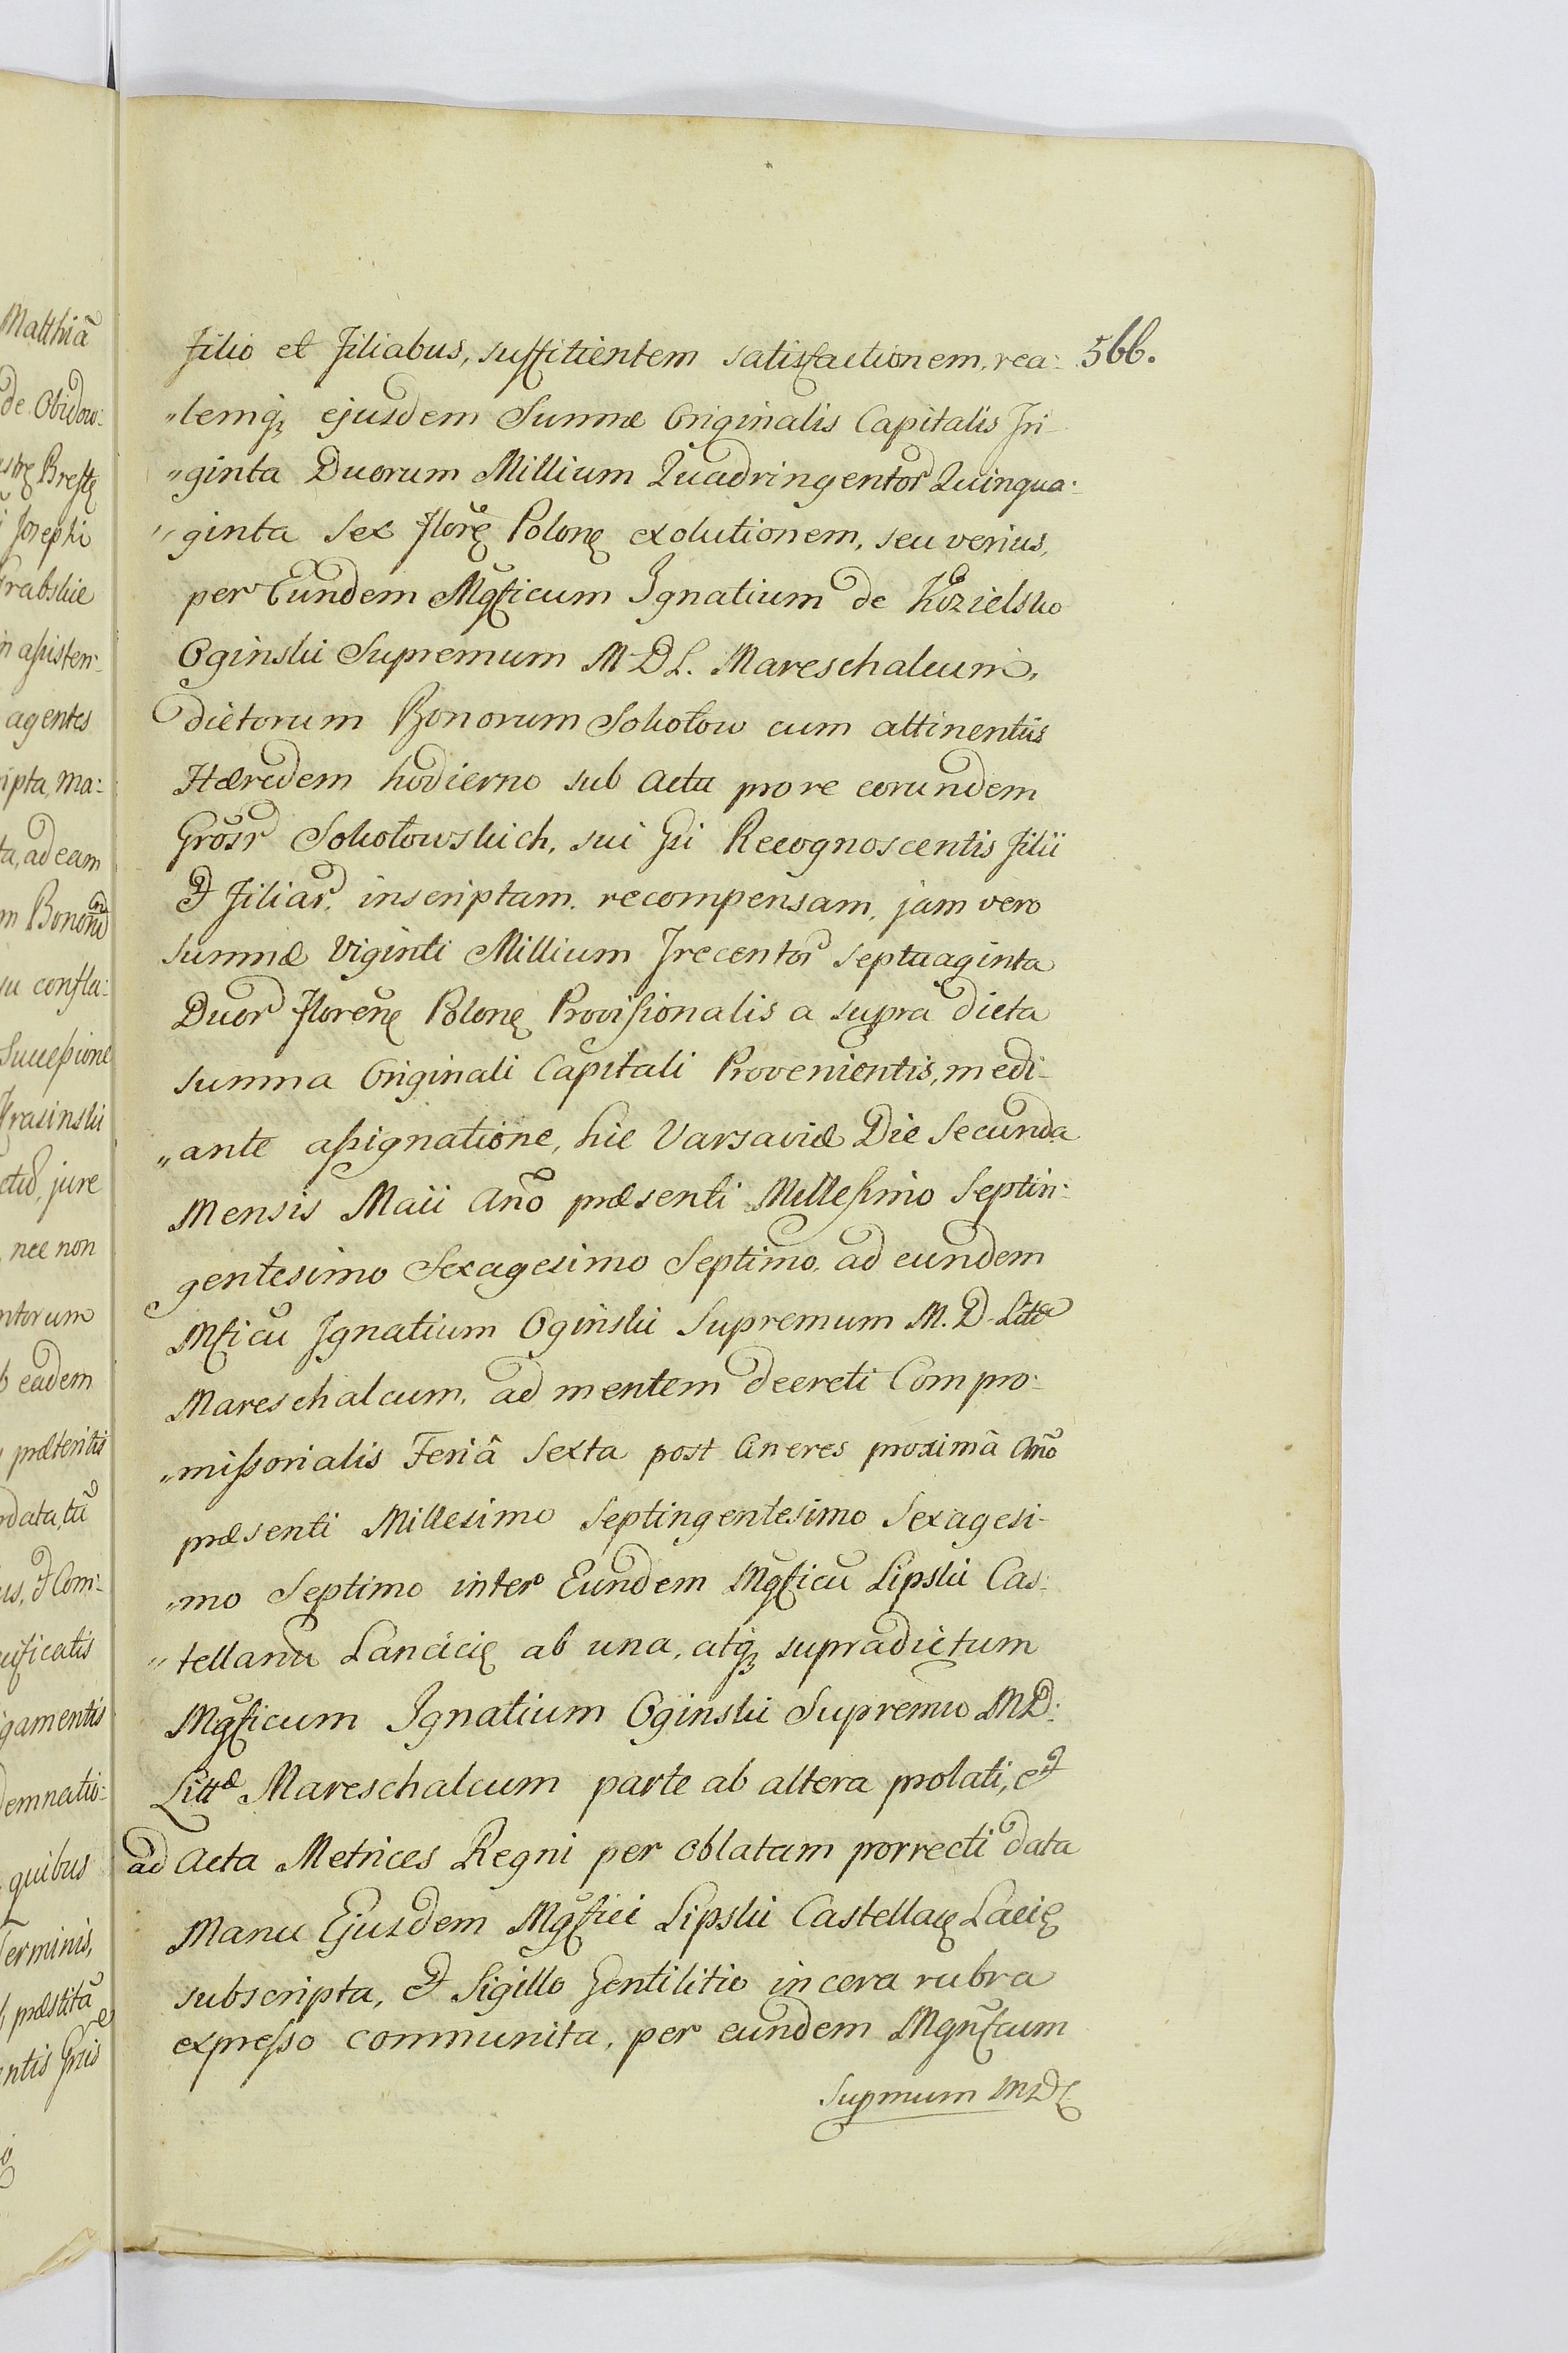 Matthiã
de Obidow:
Brestę
Josephi
rabskie
n assisten:
agentes
ripta, ma:
ta, ad eam
m Bonorũ
su conflu:
Successione
Krasinski
jure
nec non
ntorum
b eadem
præteritis
rdata, tũ
us, et Com:
uificatis
gamentis
demnatio:
quibus
Terminis,
præstitã
entis Gñis
566.
Filio et Filiabus, suffitientem satisfactionem, rea:
„lemq; ejusdem Summæ Originalis Capitalis Tri-
„ginta Duorum Millium Quadringentor Quinqua:
„ginta Sex florę Polonę exolutionem, seu verius,
per Eundem Mgficum Ignatium de Kozielsko
Oginski Supremum M D L. Mareschalcum,
dictorum Bonorum Sokołow cum attinentiis
Hæredem hodierno sub actu pro re eorundem
Grosr Sokołowskich, sui Gsi Recognoscentis filii
et Filiar. inscriptam. recompensam, jam vero
summæ Viginti Millium Trecentor septuaginta
Duor florenę Polonę Provisionalis a supra dicta
summa Originali Capitali Provenientis, medi-
„ante assignatione, hic Varsaviæ Die Secunda
Mensis Maii Año præsenti Millesimo Septin:
gentesimo Sexagesimo Septimo, ad eundem
Mficũ Ignatium Oginski Supremum M. D. Littæ
Mareschalcum, ad mentem decreti Compro:
„missorialis Feriâ Sexta post Cineres proximâ Año
præsenti Millesimo Septingentesimo Sexagesi-
„mo Septimo inter Eundem Mgficũ Lipski Cas:
„tellanũ Lancicię ab una, atq; supradictum
Mgficum Ignatium Oginski Supremũ MD:
Littæ Mareschalcum parte ab altera prolati, et
ad Acta Metrices Regni per oblatam porrecti data
Manu Ejusdem Mgfici Lipski Castellaę Lacię
subscripta, et Sigillo Gentilitio in cera rubra
expresso communita, per eundem Mgnfcum
Supmum MDL